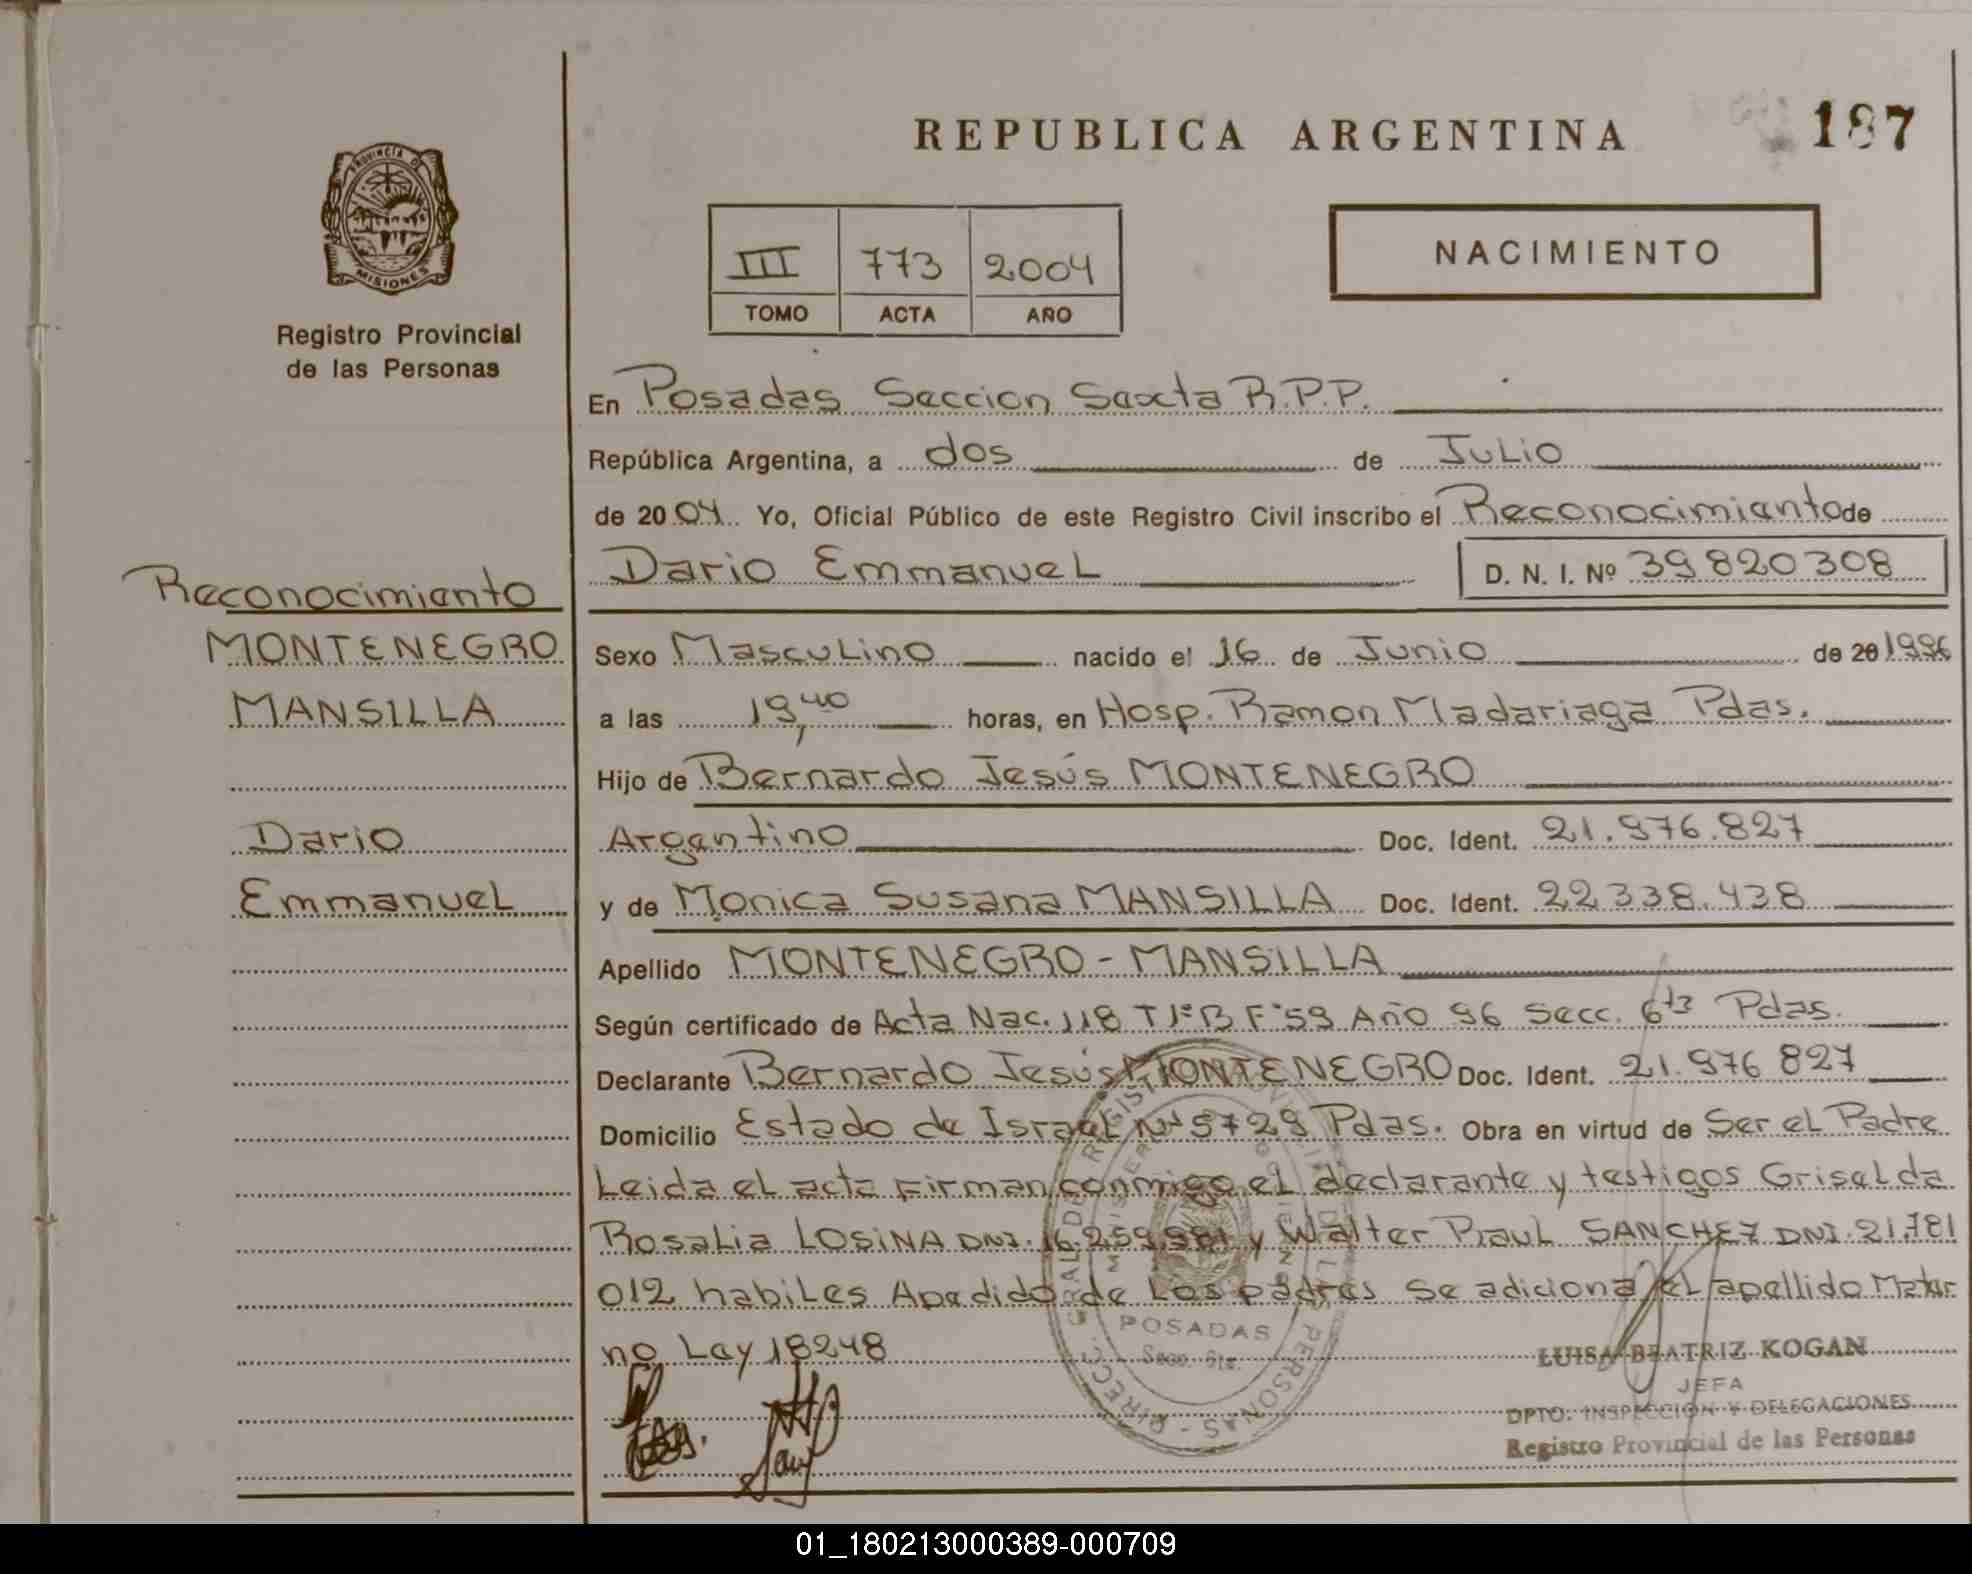 REPUBLICA ARGENTINA
187
PROVINCIA DE
MISIONES
Registro Provincial
de las Personas
III 773 2004
TOMO ACTA AÑO
NACIMIENTO
En Posadas Seccion Sexta R.P.P.
República Argentina, a dos de Julio
de 2004 Yo, Oficial Público de este Registro Civil inscribo el Reconocimiento de
Dario Emmanuel D. N. I. Nº 39820308
Reconocimiento
MONTENEGRO
MANSILLA
Dario
Emmanuel
Sexo Masculino nacido el 16 de Junio de 20 1996
a las 19,40 horas, en Hosp. Ramon Madariaga Pdas.
Hijo de Bernardo Jesús MONTENEGRO
Argentino Doc. Ident. 21.976.827
y de Monica Susana MANSILLA Doc. Ident. 22.338.438
Apellido MONTENEGRO - MANSILLA
Según certificado de Acta Nac. 118 T 1ºB Fº59 Año 96 Secc. 6ta Pdas.
Declarante Bernardo Jesús MONTENEGRO Doc. Ident. 21.976 827
Domicilio Estado de Israel Nº 5729 Pdas. Obra en virtud de Ser el Padre
Leida el acta firman conmigo el declarante y testigos Griselda
Rosalia LOSINA DNI. 16.259.981 y Walter Raul SANCHEZ DNI. 21.781
012 habiles Apedido de los padres se adiciona el apellido Mater
no Ley 18248
POSADAS
Secc. 6ta.
LUISA BEATRIZ KOGAN
JEFA
DPTO. INSPECCION Y DELEGACIONES
Registro Provincial de las Personas
01_180213000389-000709